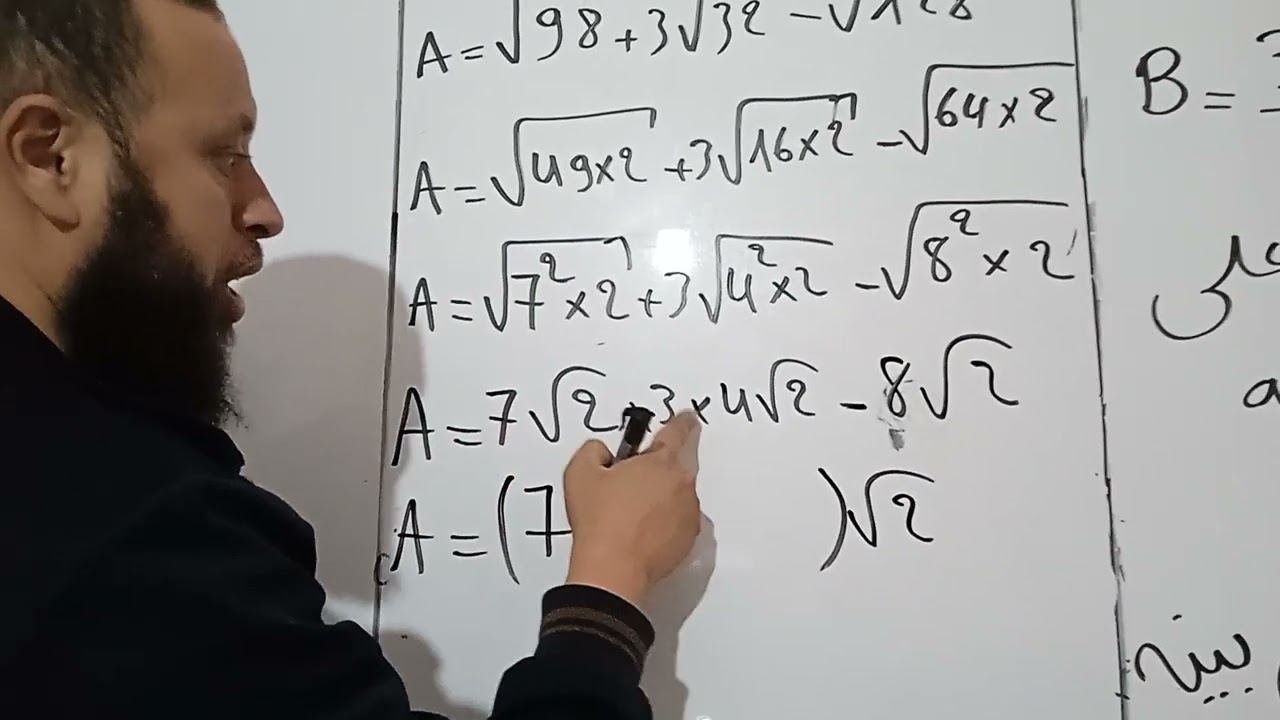 A = √98 + 3√32 − √128
A = √49×2 + 3√16×2 − √64×2
A = √7²×2 + 3√4²×2 − √8²×2
A = 7√2 + 3×4√2 − 8√2
A = (7 )√2
B =
a
بين